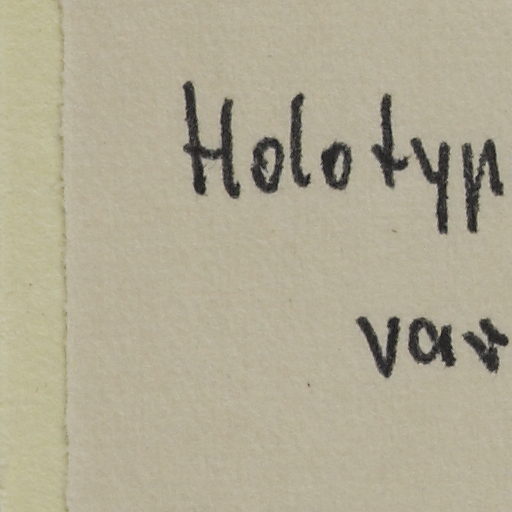 Holotyp
var